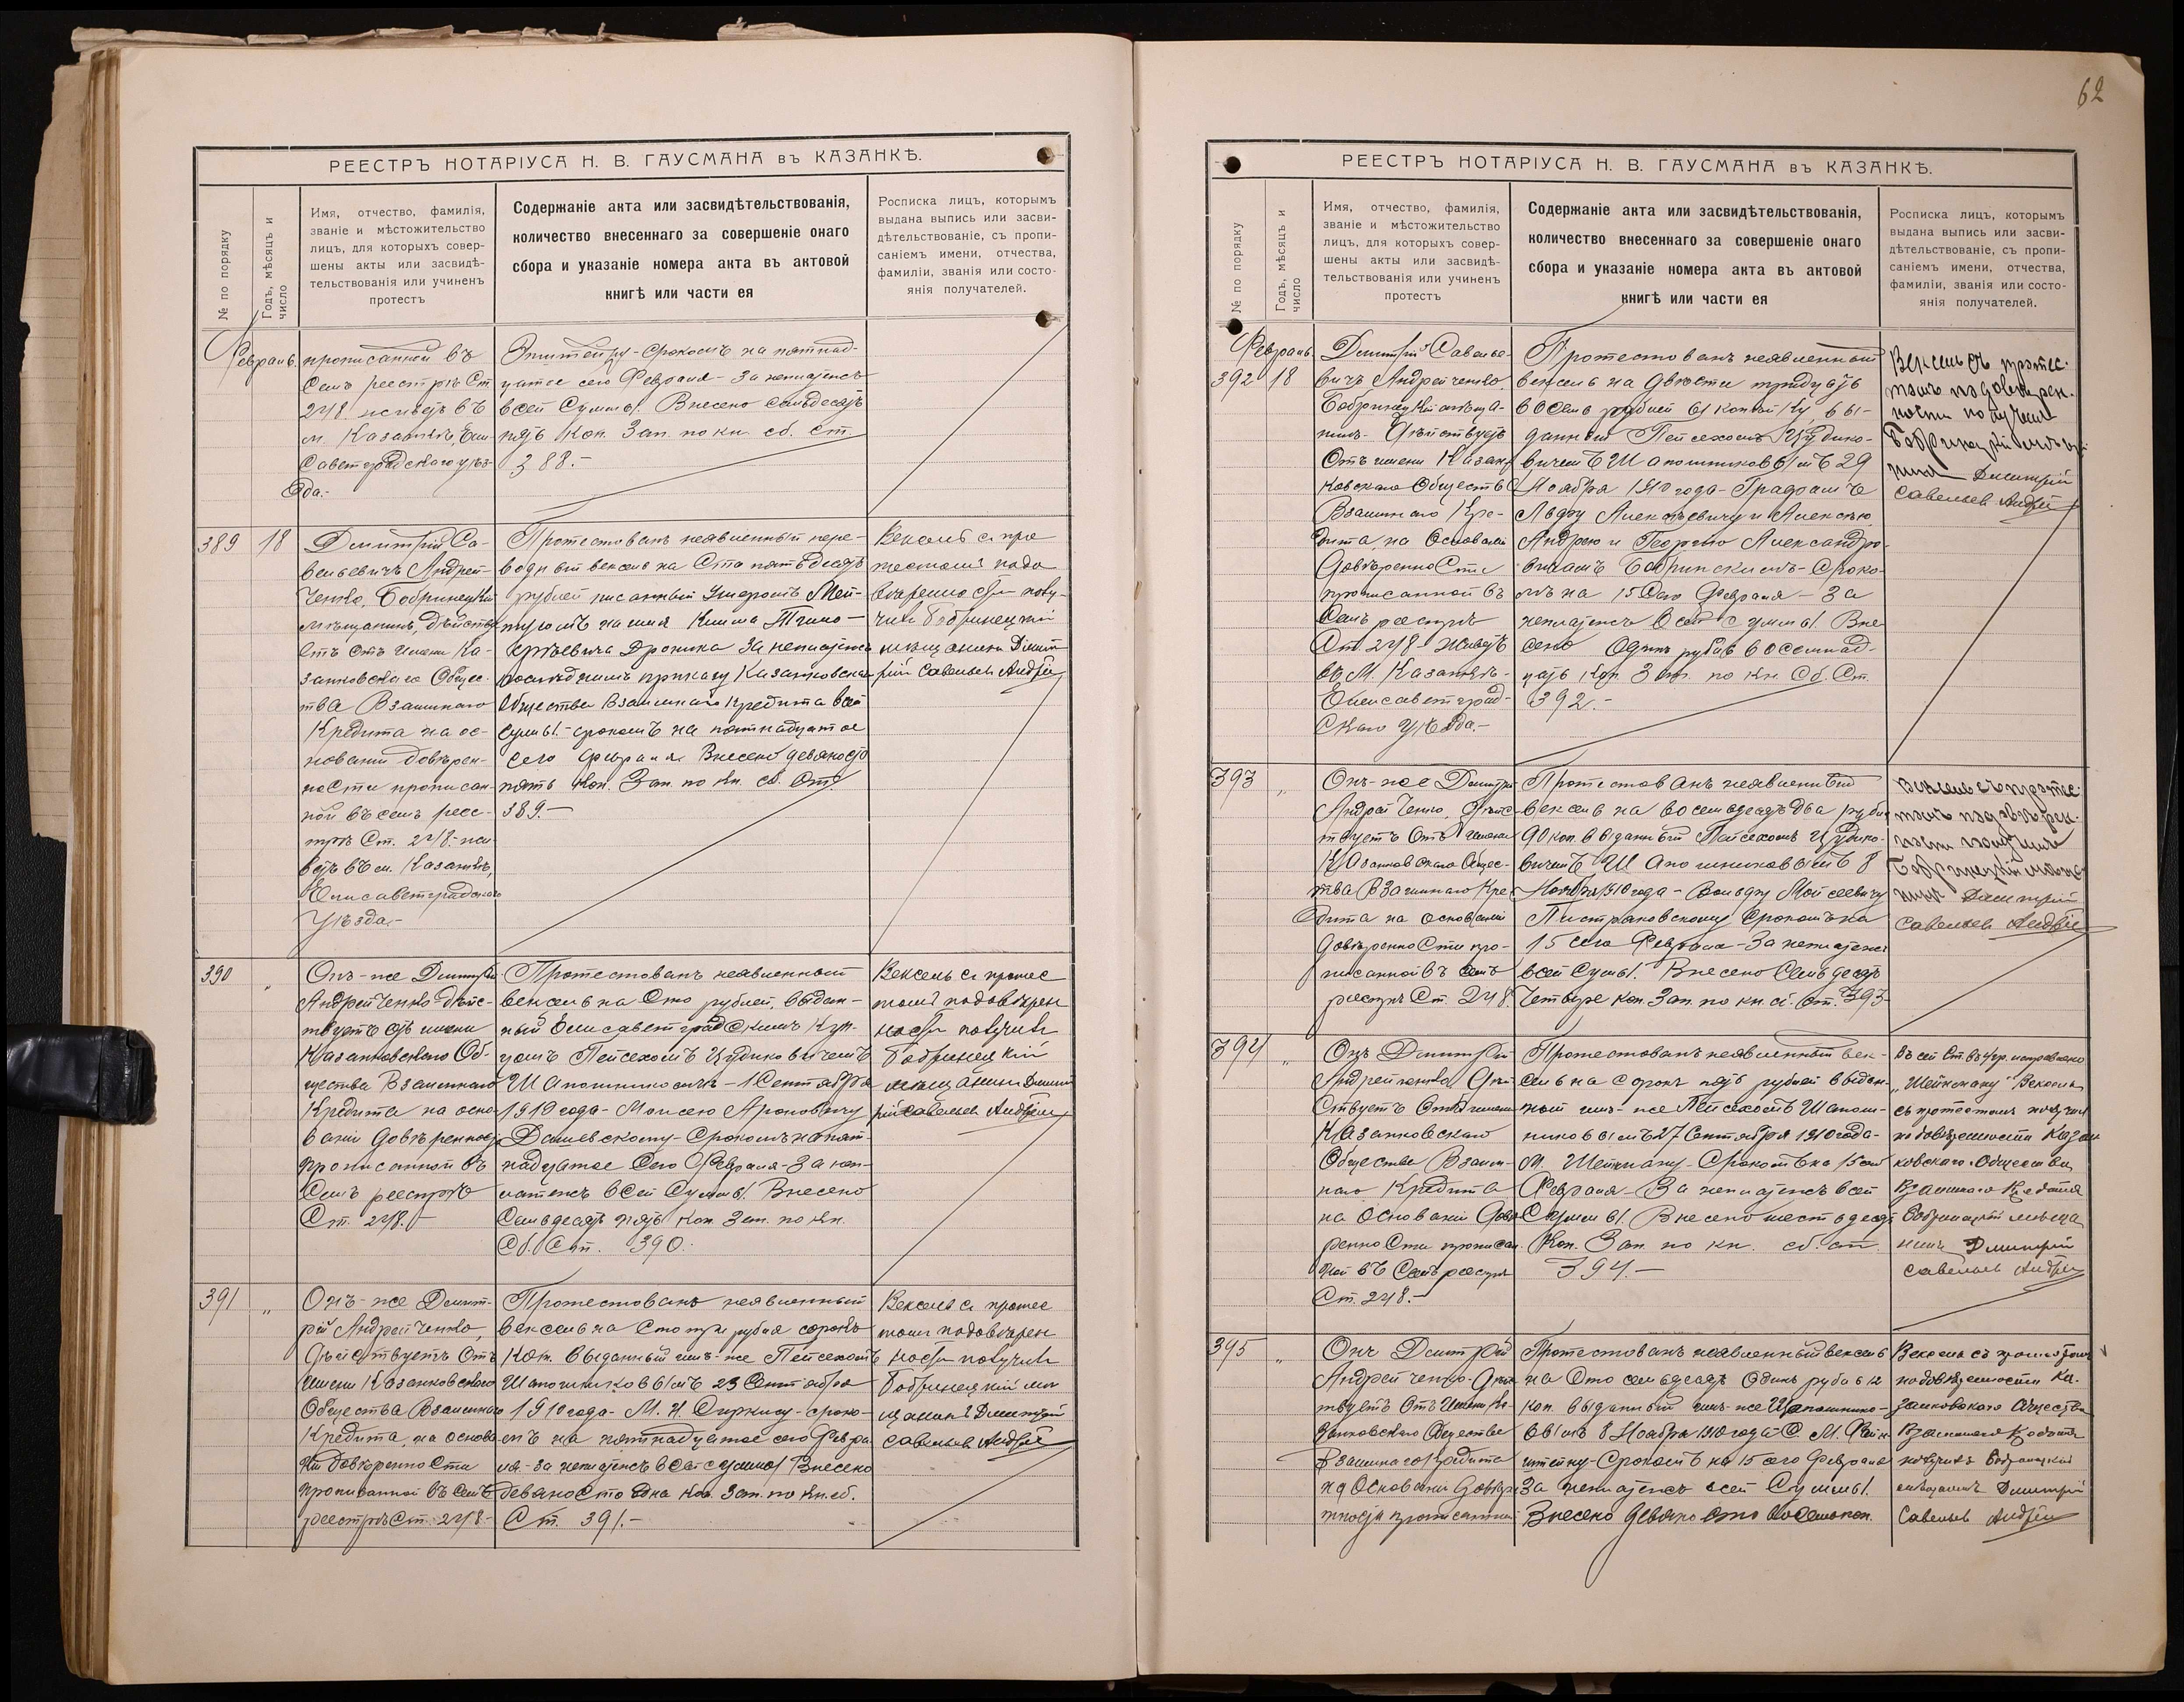 РЕЕСТРЪ НОТАРІУСА Н. В. ГАУСМАНА въ КАЗАНКѢ.
№ по порядку
Годъ, мѣсяцъ и
число
Имя, отчество, фамилія,
званіе и мѣстожительство
лицъ, для которыхъ совер-
шены акты или засвидѣ-
тельствованія или учиненъ
протестъ
Содержаніе акта или засвидѣтельствованія,
количество внесеннаго за совершеніе онаго
сбора и указаніе номера акта въ актовой
книгѣ или части ея
Росписка лицъ, которымъ
выдана выпись или засви-
дѣтельствованіе, съ пропи-
саніемъ имени, отчества,
фамиліи, званія или состо-
янія получателей.
Февраль.
прописанной въ
семъ реестрѣ Ст
248. живетъ въ
м. Казанкѣ, Ели
саветградскаго уѣз-
да.-
срокомъ на пятнад-
цатое сего Февраля - За неплатежъ
всей Суммы. Внесено семьдесятъ
пять коп. Зап. по кн. сб. ст.
388.-
389
18
Дмитрій Са-
вельевичъ Андрей-
ченко, Бобринецкій
мѣщанинъ, дѣйству
етъ отъ имени Ка-
занковскаго Общес-
тва Взаимнаго
Кредита на ос-
нованіи довѣрен-
ности прописан-
ной въ семъ реес-
трѣ Ст. 248.- жи-
ветъ въ м. Казанкѣ,
Елисаветградскаго
Уѣзда.-
Протестованъ неявленный пере-
водный вексель на Сто пятьдесятъ
рублей писанный
на имя
Дроника За неплатежъ
приказу Казанковска
Общества Взаимнаго Кредита всей
суммы.- срокомъ на пятнадцатое
сего февраля Внесено девяносто
пять коп. Зап. по кн. сб. Ст.
389.-
Вексель съ про
тестомъ по до
вѣренности полу-
чилъ Бобринецкій
мѣщанинъ Дмит
рій Савельевъ Андрей
390
„
Онъ-же Дмитрій
Андрейченко дѣйс-
твуетъ отъ имени
Казанковскаго Об-
щества Взаимнаго
Кредита на осно-
ваніи довѣренности
прописанной въ
семъ реестрѣ
Ст. 248.-
Протестованъ неявленный
вексель на Сто рублей, выдан-
ный Елисаветградскимъ Куп-
цомъ Пейсехомъ Иудковичемъ
Шапошниковымъ - 1 Сентября
1910 года - Моисею Ароновичу
Дашевскому - Срокомъ на пят-
надцатое Сего Февраля - За неп-
латежъ всей Суммы. Внесено
Семьдесятъ пять коп. Зап. по кн.
Сб. Ст. 390.
Вексель съ протес
томъ по довѣрен
ности получилъ
Бобринецкій
мѣщанинъ Дмит
рій Савельевъ Андрей
391
„
Онъ-же Дмит-
рій Андрейченко,
дѣйствуетъ отъ
имени Казанковскаго
Общества Взаимнаго
Кредита, на основа
ніи довѣренности
прописанной въ семъ
реестрѣ Ст. 248.-
Протестованъ неявленный
вексель на Сто три рубля сорокъ
коп. выданный имъ-же Пейсехомъ
Шапошниковымъ 23 Сентября
1910 года - М. Н. Сиркису - сроко-
мъ на пятнадцатое сего Февра
ля - за неплатежъ всей суммы Внесено
Девяносто одна коп. Зап. по кн. сб.
Ст. 391.-
Вексель съ протес
томъ по довѣрен
ности получилъ
Бобринецкій мѣ
щанинъ Дмитрій
Савельевъ Андрей
62
РЕЕСТРЪ НОТАРІУСА Н. В. ГАУСМАНА въ КАЗАНКѢ.
№ по порядку
Годъ, мѣсяцъ и
число
Имя, отчество, фамилія,
званіе и мѣстожительство
лицъ, для которыхъ совер-
шены акты или засвидѣ-
тельствованія или учиненъ
протестъ
Содержаніе акта или засвидѣтельствованія,
количество внесеннаго за совершеніе онаго
сбора и указаніе номера акта въ актовой
книгѣ или части ея
Росписка лицъ, которымъ
выдана выпись или засви-
дѣтельствованіе, съ пропи-
саніемъ имени, отчества,
фамиліи, званія или состо-
янія получателей.
Февраль.
392
18
Дмитрій Савелье-
вичъ Андрейченко,
Бобринецкій мѣща-
нинъ. Дѣйствуетъ
Отъ имени Казан-
ковскаго Общества
Взаимнаго Кре-
дита, на Основаніи
Довѣренности
прописанной въ
семъ реестрѣ
Ст 248 живетъ
въ М. Казанкѣ -
Елисаветград-
скаго Уѣзда.-
Протестованъ неявленный
вексель на двѣсти тридцать
восемь рублей 61 копѣйку вы-
данный Пейсехомъ Иудко-
вичемъ Шапошниковымъ 29
Ноября 1910 года - Графамъ
Льву Алексѣевичу и Алексѣю,
Андрею и Георгію Александро-
вичамъ Бобринскимъ - Сроко-
мъ на 15 Сего Февраля - За
неплатежъ всей суммы. Вне
сено Одинъ рубль восемнад-
цать коп. Зап. по кн. Сб. Ст.
392.-
Вексель съ протес-
томъ по довѣрен-
ности получилъ
Бобринецкій мѣща-
нинъ Дмитрій
Савельевъ Андрей
393
„
Онъ-же Дмитрій
Андрейченко, дѣйс-
твуетъ Отъ имени
Казанковскаго Общес-
тва Взаимнаго Кре-
дита на основаніи
довѣренности про-
писанной въ семъ
реестрѣ Ст. 248.
Протестованъ неявленный
вексель на восемьдесятъ два рубля
90 коп. выданный Пейсехомъ Иудко-
вичемъ Шапошниковымъ 8
Ноября 1910 года - Вольфу Мойсеевичу
Пистраковскому Срокомъ на
15 сего Февраля - За неплатежъ
всей Суммы. Внесено Семьдесятъ
Четыре коп. Зап. по кн. сб. Ст. 393
Вексель съ протес-
томъ по довѣрен-
ности получилъ
Бобринецкій мѣща-
нинъ Дмитрій
Савельевъ Андрей
394
„
Онъ Дмитрій
Андрейченко Дѣй-
ствуетъ Отъ имени
Казанковскаго
Общества Взаим-
наго Кредита
на Основаніи Довѣ-
ренности прописан-
ной въ Семъ реестрѣ
Ст. 248.-
Протестованъ неявленный век-
сель на сорокъ пять рублей выдан-
ный имъ-же Пейсехомъ Шапош-
никовымъ 27 Сентября 1910 года -
М. Шейнману - Срокомъ на 15 сего
Февраля - За неплатежъ всей
Суммы. Внесено шестьдесятъ
Коп. Зап. по кн. сб. ст.
394.-
Въ сей Ст. въ 4 гр. исправлено
„Шейнману" Вексель
съ протестомъ получилъ
по довѣренности Казан
ковскаго Общества
Взаимнаго Кредита
Бобринецкій мѣща
нинъ Дмитрій
Савельевъ Андрей
395
„
Онъ Дмитрій
Андрейченко - Дѣйс-
твуетъ Отъ Имени Ка-
занковскаго Общества
Взаимнаго Кредита
на Основаніи Довѣре-
нности прописанной
Протестованъ неявленный вексель
на Сто семьдесятъ Одинъ рубль 12
коп. выданный имъ-же Шапошнико-
вымъ 8 Ноября 1910 года - С. М. Файн
штейну - Срокомъ на 15 сего Февраля
За неплатежъ всей Суммы.
Внесено Девяносто восемь коп.
Вексель съ протестомъ
по довѣренности Ка-
занковскаго Общества
Взаимнаго Кредита
получилъ Бобринецкій
мѣщанинъ Дмитрій
Савельевъ Андрей